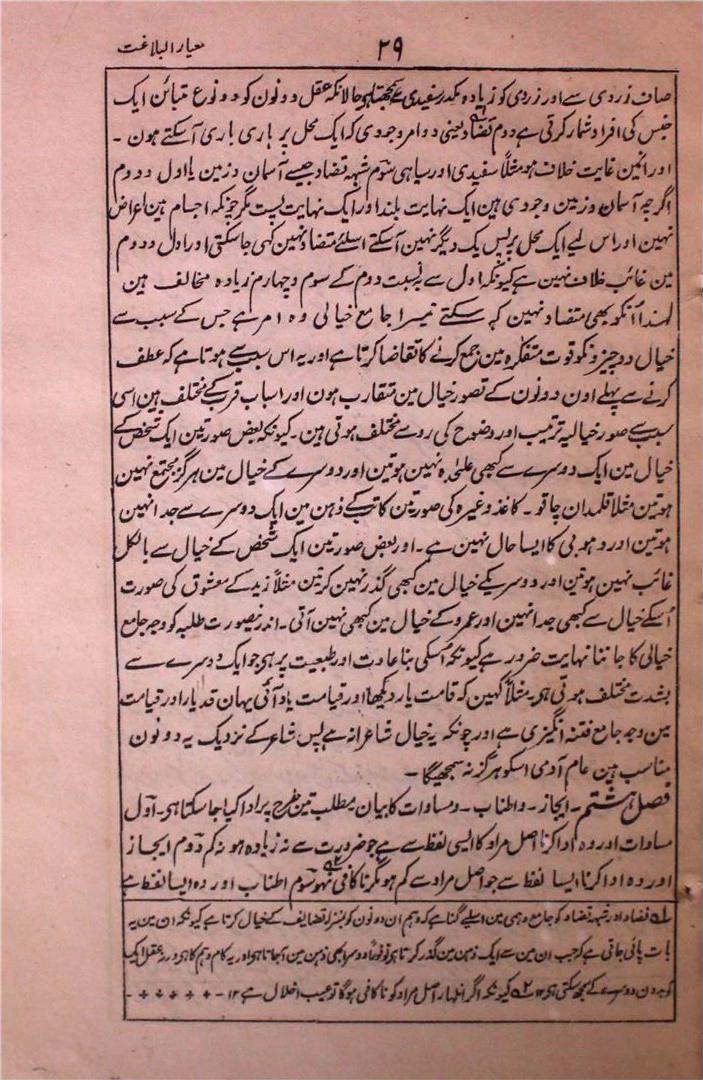 معیار البلاغت
۲۹
صاف زردی سے اور زردی کو زیادہ مکدر سفیدی سے سمجھتا ہی حالانکہ عقل دونون کو دو نوع متبائن ایک
جنس کی افراد شمار کرتی ہے دوم تضاد یعنی دو امر وجودی کہ ایک محل پر باری باری آ سکتے ہون ۔
اور انمین غایت خلاف ہو مثلاً سفیدی اور سیاہی سوم شبہ تضاد جیسے آسمان و زمین یا اول و دوم
اگرچہ آسمان و زمین وجودی ہین ایک نہایت بلند اور ایک نہایت پست مگر چونکہ اجسام ہین اعراض
نہین اور اس لیے ایک محل پر پس یک دیگر نہین آ سکتے اسلئے متضاد نہین کہی جا سکتی اور اول و دوم
مین غائب خلاف نہین ہے کیونکہ اول سے بہ نسبت دوم کے سوم و چہارم زیادہ مخالف ہین
لہذا اُنکو بھی متضاد نہین کہہ سکتے تیسرا جامع خیالی وہ امر ہے جس کے سبب سے
خیال دو چیزونکو قوت متفکرہ مین جمع کرنے کا تقاضا کرتا ہے اور یہ اس سبب سے ہوتا ہے کہ عطف
کرنے سے پہلے اون دونون کے تصور خیال مین متقارب ہون اور اسباب قرب کے مختلف ہین اسی
سبب سے صور خیالیہ ترتیب اور وضوح کی رو سے مختلف ہوتی ہین ۔ کیونکہ بعض صورتین ایک شخص کے
خیال مین ایک دوسرے سے کبھی علیٰحدہ نہین ہوتین اور دوسرے کے خیال مین ہرگز مجتمع نہین
ہوتین مثلا قلمدان چاقو ۔ کاغذ وغیرہ کی صورتین کاتب کے ذہن مین ایک دوسرے سے جدا نہین
ہوتین اور دھوبی کا ایسا حال نہین ہے ۔ اور بعض صورتین ایک شخص کے خیال سے بالکل
غائب نہین ہوتین اور دوسریکے خیال مین کبھی گذر نہین کرتین مثلاً زید کے معشوق کی صورت
اُسکے خیال سے کبھی جدا نہین اور عمرو کے خیال مین کبھی نہین آتی ۔ اندرینصورت طلبہ کو وجہ جامع
خیالی کا جاننا نہایت ضرور ہے کیونکہ اُسکی بنا عادت اور طبیعت پر ہی جو ایک دوسرے سے
بشدت مختلف ہوتی ہی مثلاً کہین کہ قامت یار دکھا اور قیامت یاد آئی یہان قد یار اور قیامت
مین وجہ جامع فتنہ انگیزی ہے اور چونکہ یہ خیال شاعرانہ ہے پس شاعر کے نزدیک یہ دونون
مناسب ہین عام آدمی اسکو ہرگز نہ سمجھیگا ۔
فصل ہشتم ۔ ایجاز ۔ و اطناب ۔ و مساوات کا بیان مطلب تین طرح پر ادا کیا جا سکتا ہی ۔ اوّل
مساوات اور وہ ادا کرنا اصل مراد کا ایسی لفظ سے ہے جو ضرورت سے نہ زیادہ ہو نہ کم دوم ایجاز
اور وہ ادا کرنا ایسا لفظ سے جو اصل مراد سے کم ہو مگر ناکافی نہو سوم اطناب اور وہ ایسا لفظ ہے
۱؎ تضاد اور شبہ تضاد کو جامع وہمی مین اسلیے گنا ہے کہ وہم ان دونون کو بمنزلہ تضایف کے خیال کرتا ہے کیونکہ ان مین یہ
بات پائی جاتی ہے کہ جب ان مین سے ایک ذہن مین گذر کرتا ہو تو فوراً دوسرا بھی ذہن مین آ جاتا ہو اور یہ کام وہم کا ہی ورنہ عقل ایک
کو بدون دوسرے کے سمجھ سکتی ہی ۱۲ ۲؎ کیونکہ اگر اظہار اصل مراد کو ناکافی ہوگا تو عیب اخلال ہے ۱۲ ۔